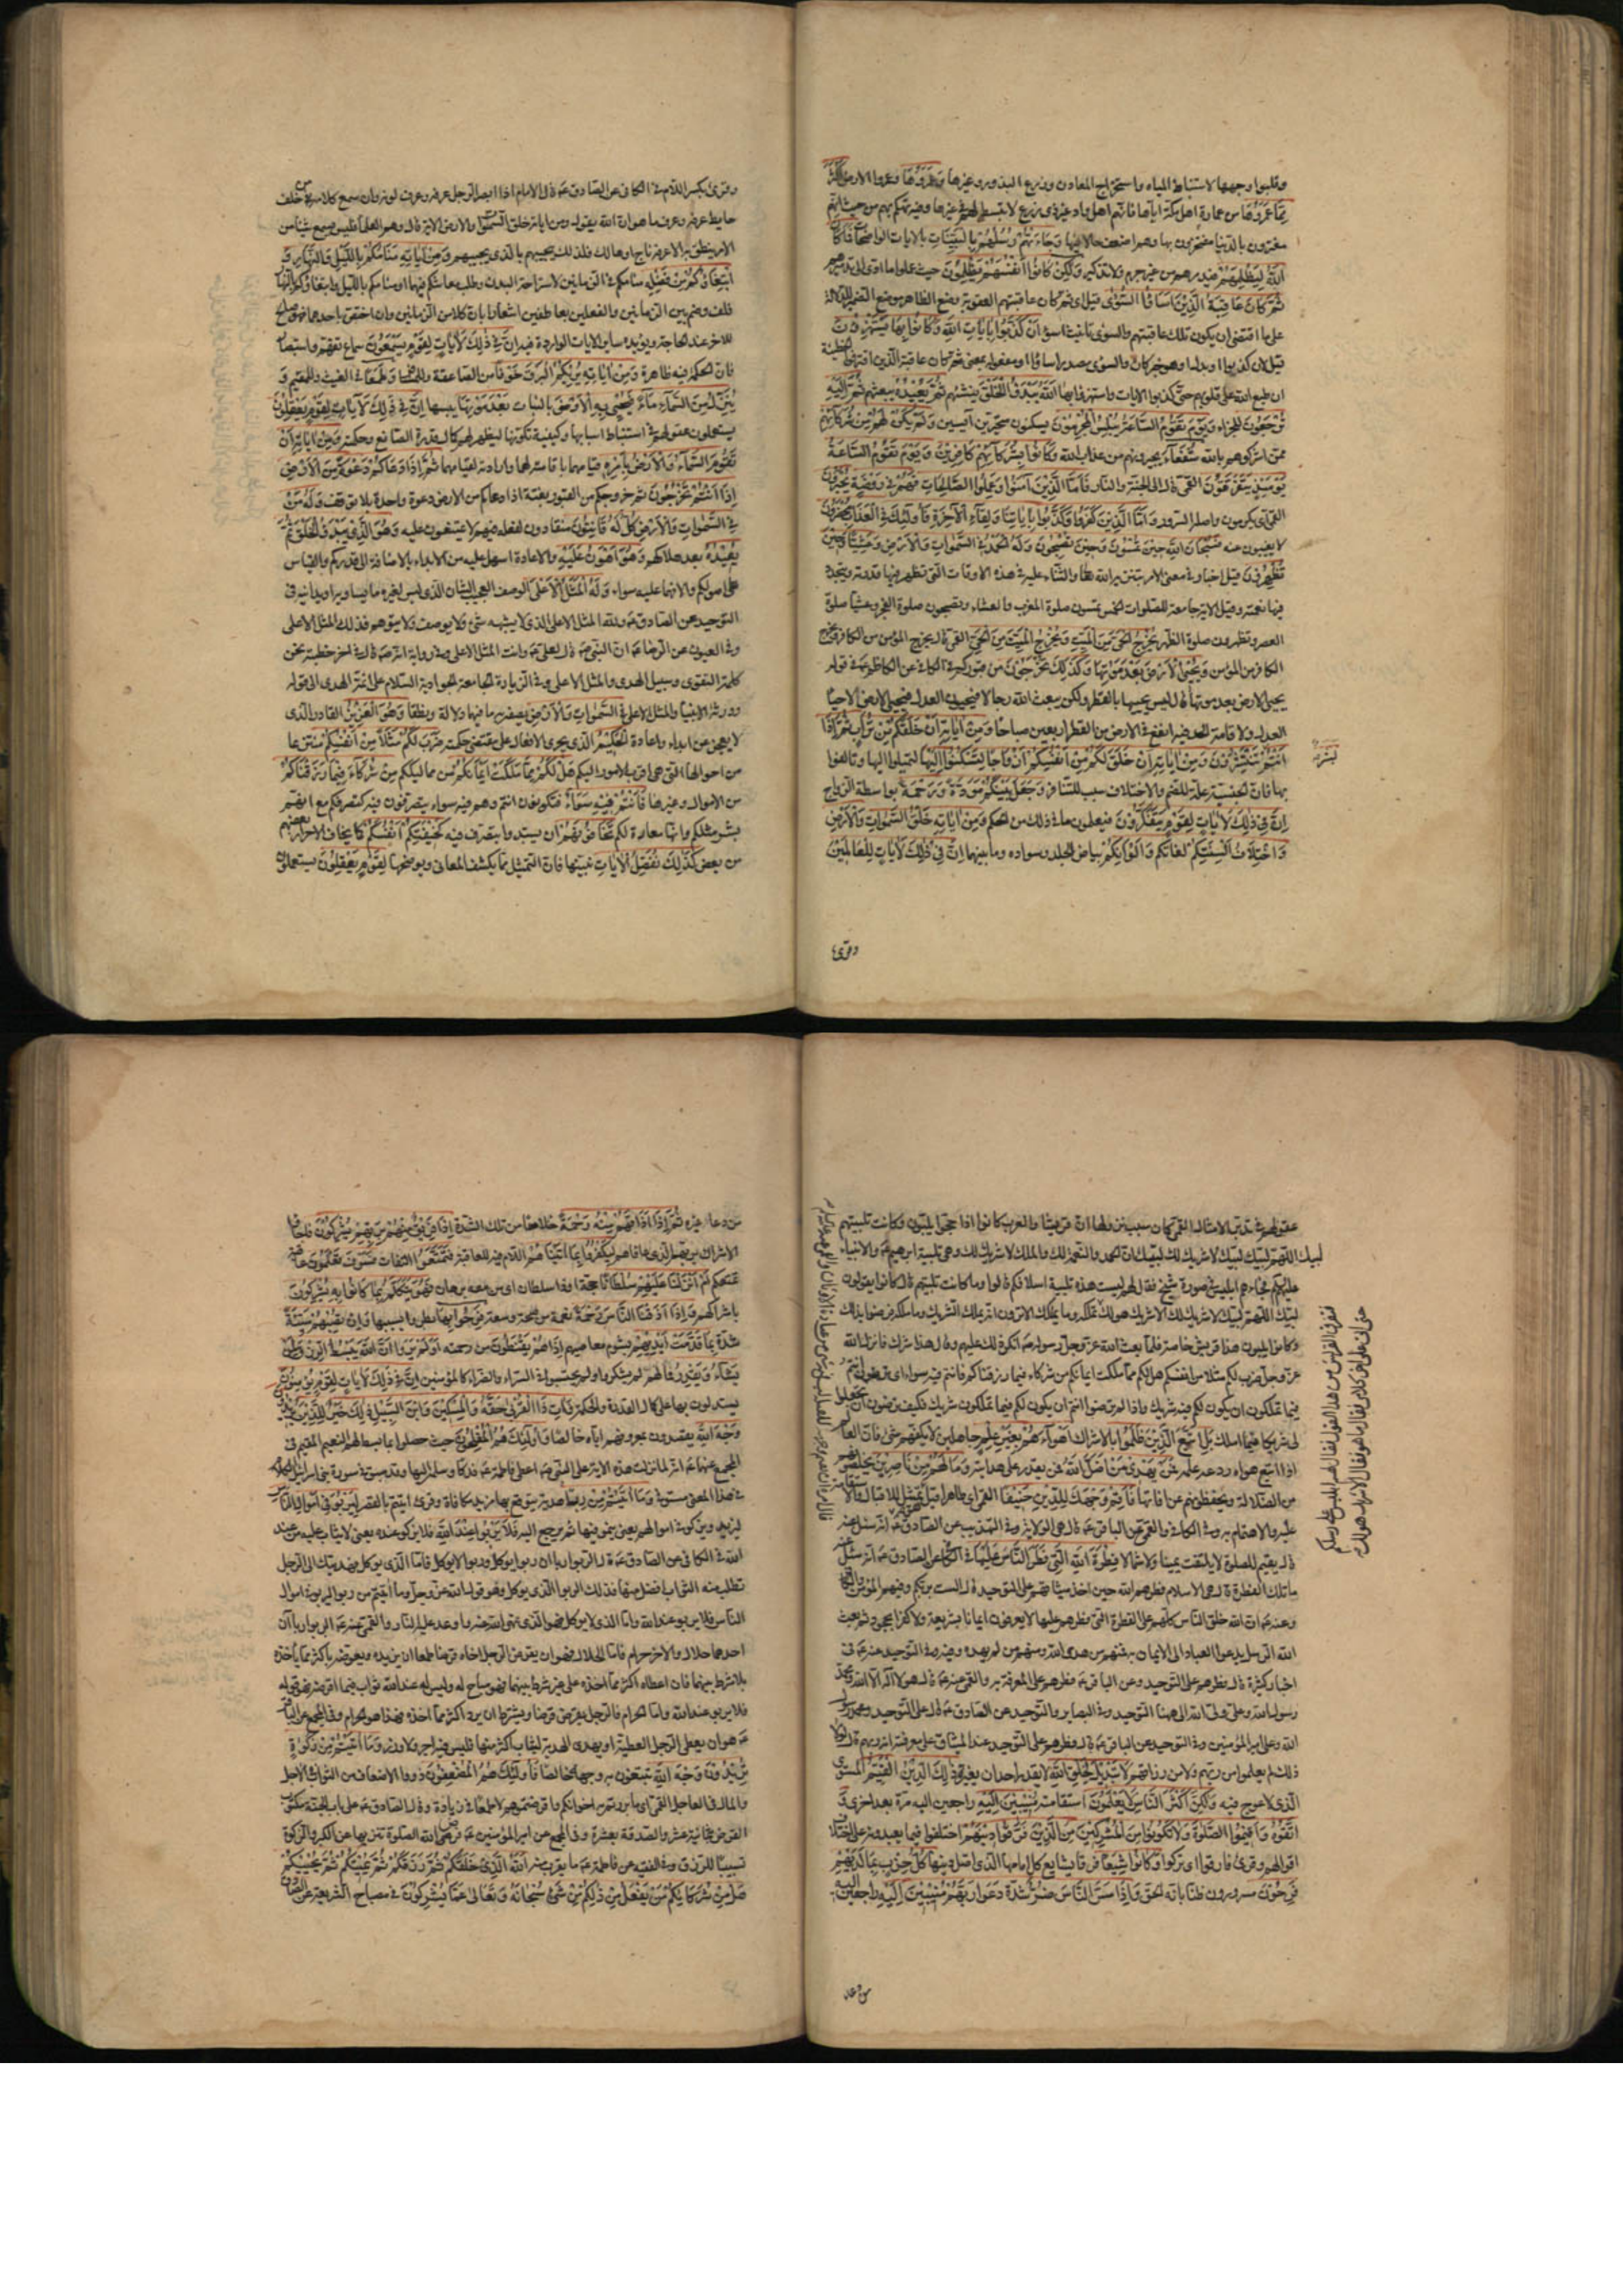 وقلبوا وجهها لاستنباط المياه واستخراج المعادن وزرع البذور وغيرها وعمروها وعمروا الارض اكثر
مما عمروها من عمارة اهل مكة اياها فانهم اهل واد غير ذي زرع لا تبسط لهم في غيرها وفيه تهكم بهم من حيث انهم
مغترون بالدنيا مفتخرون بها وهم اضعف حالا فيها وجاءتهم رسلهم بالبينات بالايات الواضحات فما كان
الله ليظلمهم فيدمرهم من غير جرم ولا تذكير ولكن كانوا انفسهم يظلمون حيث عملوا ما ادى الى تدميرهم
ثم كان عاقبة الذين اساؤا السوأى قيل اي ثم كان عاقبتهم العقوبة وضع الظاهر موضع الضمير للدلالة
على ما اقتضى ان يكون تلك عاقبتهم والسوأى تانيث اسوء ان كذبوا بايات الله وكانوا بها يستهزؤن
قيل لان كذبوا او بدل او هو خبر كان والسوأى مصدر اساؤا او مفعوله بمعنى ثم كان عاقبة الذين اقترفوا الخطيئة
ان طبع الله على قلوبهم حتى كذبوا الايات واستهزؤا بها الله يبدؤ الخلق ينشئهم ثم يعيده يبعثهم ثم اليه
ترجعون للجزاء ويوم تقوم الساعة يبلس المجرمون يسكتون متحيرين آيسين ولم يكن لهم من شركائهم
ممن اشركوهم بالله شفعاء يجيرونهم من عذاب الله وكانوا بشركائهم كافرين ويوم تقوم الساعة
يومئذ يتفرقون القمي قال الى الجنة والنار فاما الذين آمنوا وعملوا الصالحات فهم في روضة يحبرون
القمي اي يكرمون واصله السرور واما الذين كفروا وكذبوا باياتنا ولقاء الآخرة فاولئك في العذاب محضرون
لا يغيبون عنه فسبحان الله حين تمسون وحين تصبحون وله الحمد في السموات والارض وعشيا وحين
تظهرون قيل اخبار في معنى الامر بتنزيه الله تعالى والثناء عليه في هذه الاوقات التي تظهر فيها قدرته وتتجدد
فيها نعمته وقيل الاية جامعة للصلوات الخمس تمسون صلوة المغرب والعشاء وتصبحون صلوة الفجر وعشيا صلوة
العصر وتظهرون صلوة الظهر يخرج الحي من الميت ويخرج الميت من الحي القمي قال يخرج المؤمن من الكافر ويخرج
الكافر من المؤمن ويحيي الارض بعد موتها وكذلك تخرجون من قبوركم في الكافي عن الكاظم ع في قوله
يحيي الارض بعد موتها قال ليس يحييها بالقطر ولكن يبعث الله رجالا فيحيون العدل فتحيى الارض لاحياء
العدل ولاقامة الحد فيه انفع في الارض من القطر اربعين صباحا ومن اياته ان خلقكم من تراب ثم اذا
انتم بشر تنتشرون ومن اياته ان خلق لكم من انفسكم ازواجا لتسكنوا اليها لتميلوا اليها وتالفوا
بها فان الجنسية علة للضم والاختلاف سبب للتنافر وجعل بينكم مودة ورحمة بواسطة الزواج
ان في ذلك لايات لقوم يتفكرون فيعلمون ما في ذلك من الحكم ومن اياته خلق السموات والارض
واختلاف السنتكم لغاتكم والوانكم بياض الجلد وسواده وما بينهما ان في ذلك لايات للعالمين
وقرئ
وقرئ بكسر اللام في الكافي عن الصادق ع قال الامام اذا ابصر الرجل عرفه وعرف لونه وان سمع كلامه من خلف
حايط عرفه وعرف ما هو ان الله يقول ومن اياته خلق السموات والارض الاية قال وهم العلماء فليس يسمع شيئا من
الامر ينطق به الا عرفه ناج او هالك فلذلك يجيبهم بالذي يجيبهم ومن اياته منامكم بالليل والنهار و
ابتغاؤكم من فضله منامكم في الزمانين لاستراحة البدن وطلب معاشكم فيهما او منامكم بالليل وابتغاؤكم بالنهار
فلف وضم بين الزمانين والفعلين بعاطفين اشعارا بان كلا من الزمانين وان اختص باحدهما فهو صالح
للاخر عند الحاجة ويؤيده ساير الايات الواردة فيه ان في ذلك لايات لقوم يسمعون سماع تفهم واستبصار
فان الحكمة فيه ظاهرة ومن اياته يريكم البرق خوفا من الصاعقة وللمسافر وطمعا في الغيث وللمقيم و
ينزل من السماء ماء فيحيي به الارض بالنبات بعد موتها يبسها ان في ذلك لايات لقوم يعقلون
يستعملون عقولهم في استنباط اسبابها وكيفية تكونها ليظهر لهم كمال قدرة الصانع وحكمته ومن اياته ان
تقوم السماء والارض بامره قيامهما باقامته لهما وارادته لقيامهما ثم اذا دعاكم دعوة من الارض
اذا انتم تخرجون ثم خروجكم من القبور بغتة اذا دعاكم من الارض دعوة واحدة بلا توقف وله من
في السموات والارض كل له قانتون منقادون لفعله فيهم لا يمتنعون عليه وهو الذي يبدؤ الخلق ثم
يعيده بعد هلاكهم وهو اهون عليه والاعادة اسهل عليه من الابداء بالاضافة الى قدركم والقياس
على اصولكم والا فهما عليه سواء وله المثل الاعلى الوصف العجيب الشان الذي ليس لغيره ما يساويه او يدانيه في
التوحيد عن الصادق ع ولله المثل الاعلى الذي لا يشبهه شئ ولا يوصف ولا يتوهم فذلك المثل الاعلى
وفي العيون عن الرضا ع ان النبي ص قال لعلي ع وانت المثل الاعلى وفي رواية انه ص قال في اخر خطبته نحن
كلمة التقوى وسبيل الهدى والمثل الاعلى وفي الزيارة الجامعة الجوادية السلام على ائمة الهدى الى قوله
وورثة الانبياء والمثل الاعلى في السموات والارض يصفه به ما فيهما دلالة ونطقا وهو العزيز القادر الذي
لا يعجز عن ابداء واعادة الحكيم الذي يجري الافعال على مقتضى حكمته ضرب لكم مثلا من انفسكم منتزعا
من احوالها التي هي اقرب الامور اليكم هل لكم مما ملكت ايمانكم من مماليككم من شركاء فيما رزقناكم
من الاموال وغيرها فانتم فيه سواء فتكونون انتم وهم فيه سواء يتصرفون فيه كتصرفكم مع انهم
بشر مثلكم وانها معارة لكم تخافونهم ان يستبدوا بتصرف فيه كخيفتكم انفسكم كما يخاف الاحرار بعضهم
من بعض كذلك نفصل الايات نبينها فان التمثيل مما يكشف المعاني ويوضحها لقوم يعقلون يستعملون
عقولهم في تدبر الامثال القمي كان سبب نزولها ان قريشا والعرب كانوا اذا حجوا يلبون وكانت تلبيتهم
لبيك اللهم لبيك لبيك لا شريك لك لبيك ان الحمد والنعمة لك والملك لا شريك لك وهي تلبية ابرهيم ع والانبياء
عليهم فجاءهم ابليس في صورة شيخ فقال لهم ليست هذه تلبية اسلافكم قالوا وما كانت تلبيتهم قال كانوا يقولون
لبيك اللهم لبيك لا شريك لك الا شريك هو لك تملكه وما يملك الا ترون انه يملك الشريك وما ملكه فرضوا بذلك
وكانوا يلبون هذا قريش خاصة فلما بعث الله عز وجل رسوله ص انكر ذلك عليهم وقال هذا شرك فانزل الله
عز وجل ضرب لكم مثلا من انفسكم هل لكم مما ملكت ايمانكم من شركاء فيما رزقناكم فانتم فيه سواء اي ترضون انتم
فيما تملكون ان يكون لكم فيه شريك واذا لم ترضوا انتم ان يكون لكم فيما تملكون شريك فكيف ترضون ان تجعلوا
لي شريكا فيما املك بل اتبع الذين ظلموا بالاشراك اهواءهم بغير علم جاهلين لا يكفهم شئ فان العالم
اذا اتبع هواه ردعه علمه فمن يهدي من اضل الله فمن يقدر على هدايته وما لهم من ناصرين يخلصونهم
من الضلالة ويحفظونهم عن افاتها فاقم وجهك للدين حنيفا القمي اي طاهرا قيل تمثيل للاقبال والاستقامة
عليه والاهتمام به وفي الكافي والقمي عن الباقر ع قال هي الولاية وفي التهذيب عن الصادق ع انه سئل عنه
قال يقيم للصلوة لا يلتفت يمينا ولا شمالا فطرة الله التي فطر الناس عليها في الكافي عن الصادق ع انه سئل
ما تلك الفطرة قال هي الاسلام فطرهم الله حين اخذ ميثاقهم على التوحيد قال الست بربكم وفيهم المؤمن والكافر
وعنه ع ان الله خلق الناس كلهم على الفطرة التي فطرهم عليها لا يعرفون ايمانا بشريعة ولا كفرا بجحود ثم بعث
الله الرسل يدعوا العباد الى الايمان به فمنهم من هدى الله ومنهم من لم يهده وفي التوحيد عنه ع في
اخبار كثيرة قال فطرهم على التوحيد وعن الباقر ع فطرهم على المعرفة به والقمي عنه ع قال هو لا اله الا الله محمد
رسول الله وعلي ولي الله الى ههنا التوحيد وفي البصاير والتوحيد عن الصادق ع قال على التوحيد ومحمد رسول
الله وعلي امير المؤمنين وفي التوحيد عن الباقر ع قال فطرهم على التوحيد عند الميثاق على معرفته انه ربهم قال لولا
ذلك لم يعلموا من ربهم ولا من رازقهم لا تبديل لخلق الله لا يقدر احد ان يغيره ذلك الدين القيم المستوي
الذي لا عوج فيه ولكن اكثر الناس لا يعلمون استقامته منيبين اليه راجعين اليه مرة بعد اخرى و
اتقوه واقيموا الصلوة ولا تكونوا من المشركين من الذين فرقوا دينهم اختلفوا فيما يعبدونه على اختلاف
اهوائهم وقرئ فارقوا اي تركوا وكانوا شيعا فرقا يشايع كل امامها الذي اضل دينها كل حزب بما لديهم
فرحون مسرورون ظنا بانه الحق واذا مس الناس ضر شدة دعوا ربهم منيبين اليه راجعين اليه
فنفرت قريش من هذا القول فقال لهم ابليس على رسلكم
حتى آتي على اخر كلامي فقالوا ما هو فقال الا شريك هو لك
من دعاء
من دعاء غيره ثم اذا اذاقهم منه رحمة خلاصا من تلك الشدة اذا فريق منهم بربهم يشركون فاجأوا
الاشراك بربهم الذي عافاهم ليكفروا بما آتيناهم اللام فيه للعاقبة فتمتعوا التفات فسوف تعلمون عاقبة
تمتعكم ام انزلنا عليهم سلطانا حجة او ذا سلطان اي من معه برهان فهو يتكلم بما كانوا به يشركون
باشراكهم واذا اذقنا الناس رحمة نعمة من صحة وسعة فرحوا بها بطروا بسببها وان تصبهم سيئة
شدة بما قدمت ايديهم بشؤم معاصيهم اذا هم يقنطون من رحمته اولم يروا ان الله يبسط الرزق لمن
يشاء ويقدر فما لهم لم يشكروا ولم يحتسبوا في السراء والضراء كالمؤمنين ان في ذلك لايات لقوم يؤمنون
يستدلون بها على كمال القدرة والحكمة فات ذا القربى حقه والمسكين وابن السبيل ذلك خير للذين يريدون
وجه الله يقصدون بمعروفهم اياه خالصا واولئك هم المفلحون حيث حصلوا بما بسط لهم النعيم المقيم في
المجمع عنهما ع انه لما نزلت هذه الاية على النبي ص اعطى فاطمة ع فدكا وسلمه اليها وقد مضى في سورة بني اسرائيل الكلام
في هذا المعنى مستوفى وما اتيتم من ربا هدية يتوقع بها مزيد مكافاة وقرئ اتيتم بالقصر ليربو في اموال الناس
ليزيد ويزكو في اموالهم يعني ينمو فيها ثم يرجع اليه فلا يربوا عند الله فلا يزكو عنده يعني لا يثاب عليه من عند
الله في الكافي عن الصادق ع قال الربوا ربا ان ربوا يوكل وربوا لا يوكل فاما الذي يوكل فهديتك الى الرجل
تطلب منه الثواب افضل منها فذلك الربوا الذي يوكل وهو قول الله عز وجل وما اتيتم من ربوا ليربو في اموال
الناس فلا يربو عند الله واما الذي لا يوكل فهو الذي نهى الله عنه واوعد عليه النار والقمي عنه ع الربوا رباآن
احدهما حلال والاخر حرام فاما الحلال فهو ان يقرض الرجل اخاه قرضا طمعا ان يزيده ويعوضه باكثر مما ياخذه
بلا شرط بينهما فان اعطاه اكثر مما اخذه على غير شرط بينهما فهو مباح له وليس له عند الله ثواب فيما اقرضه وهو قوله
فلا يربو عند الله واما الحرام فالرجل يقرض قرضا ويشترط ان يرد اكثر مما اخذه فهذا هو الحرام وفي المجمع عن الباقر
ع هو ان يعطي الرجل العطية او يهدي الهدية ليثاب اكثر منها فليس فيه اجر ولا وزر وما اتيتم من زكوة
تريدون وجه الله تبتغون به وجهه خالصا فاولئك هم المضعفون ذووا الاضعاف من الثواب في الاجل
والمال في العاجل القمي اي ما بررتم به اخوانكم واقرضتموهم لا طمعا في زيادة وقال الصادق ع على باب الجنة مكتوب
القرض بثمانية عشر والصدقة بعشرة وفي المجمع عن امير المؤمنين ع فرض الله الصلوة تنزيها عن الكبر والزكوة
تسبيبا للرزق وفي الفقيه عن فاطمة ع ما يقرب منه الله الذي خلقكم ثم رزقكم ثم يميتكم ثم يحييكم
هل من شركائكم من يفعل من ذلكم من شئ سبحانه وتعالى عما يشركون في مصباح الشريعة عن الصادق